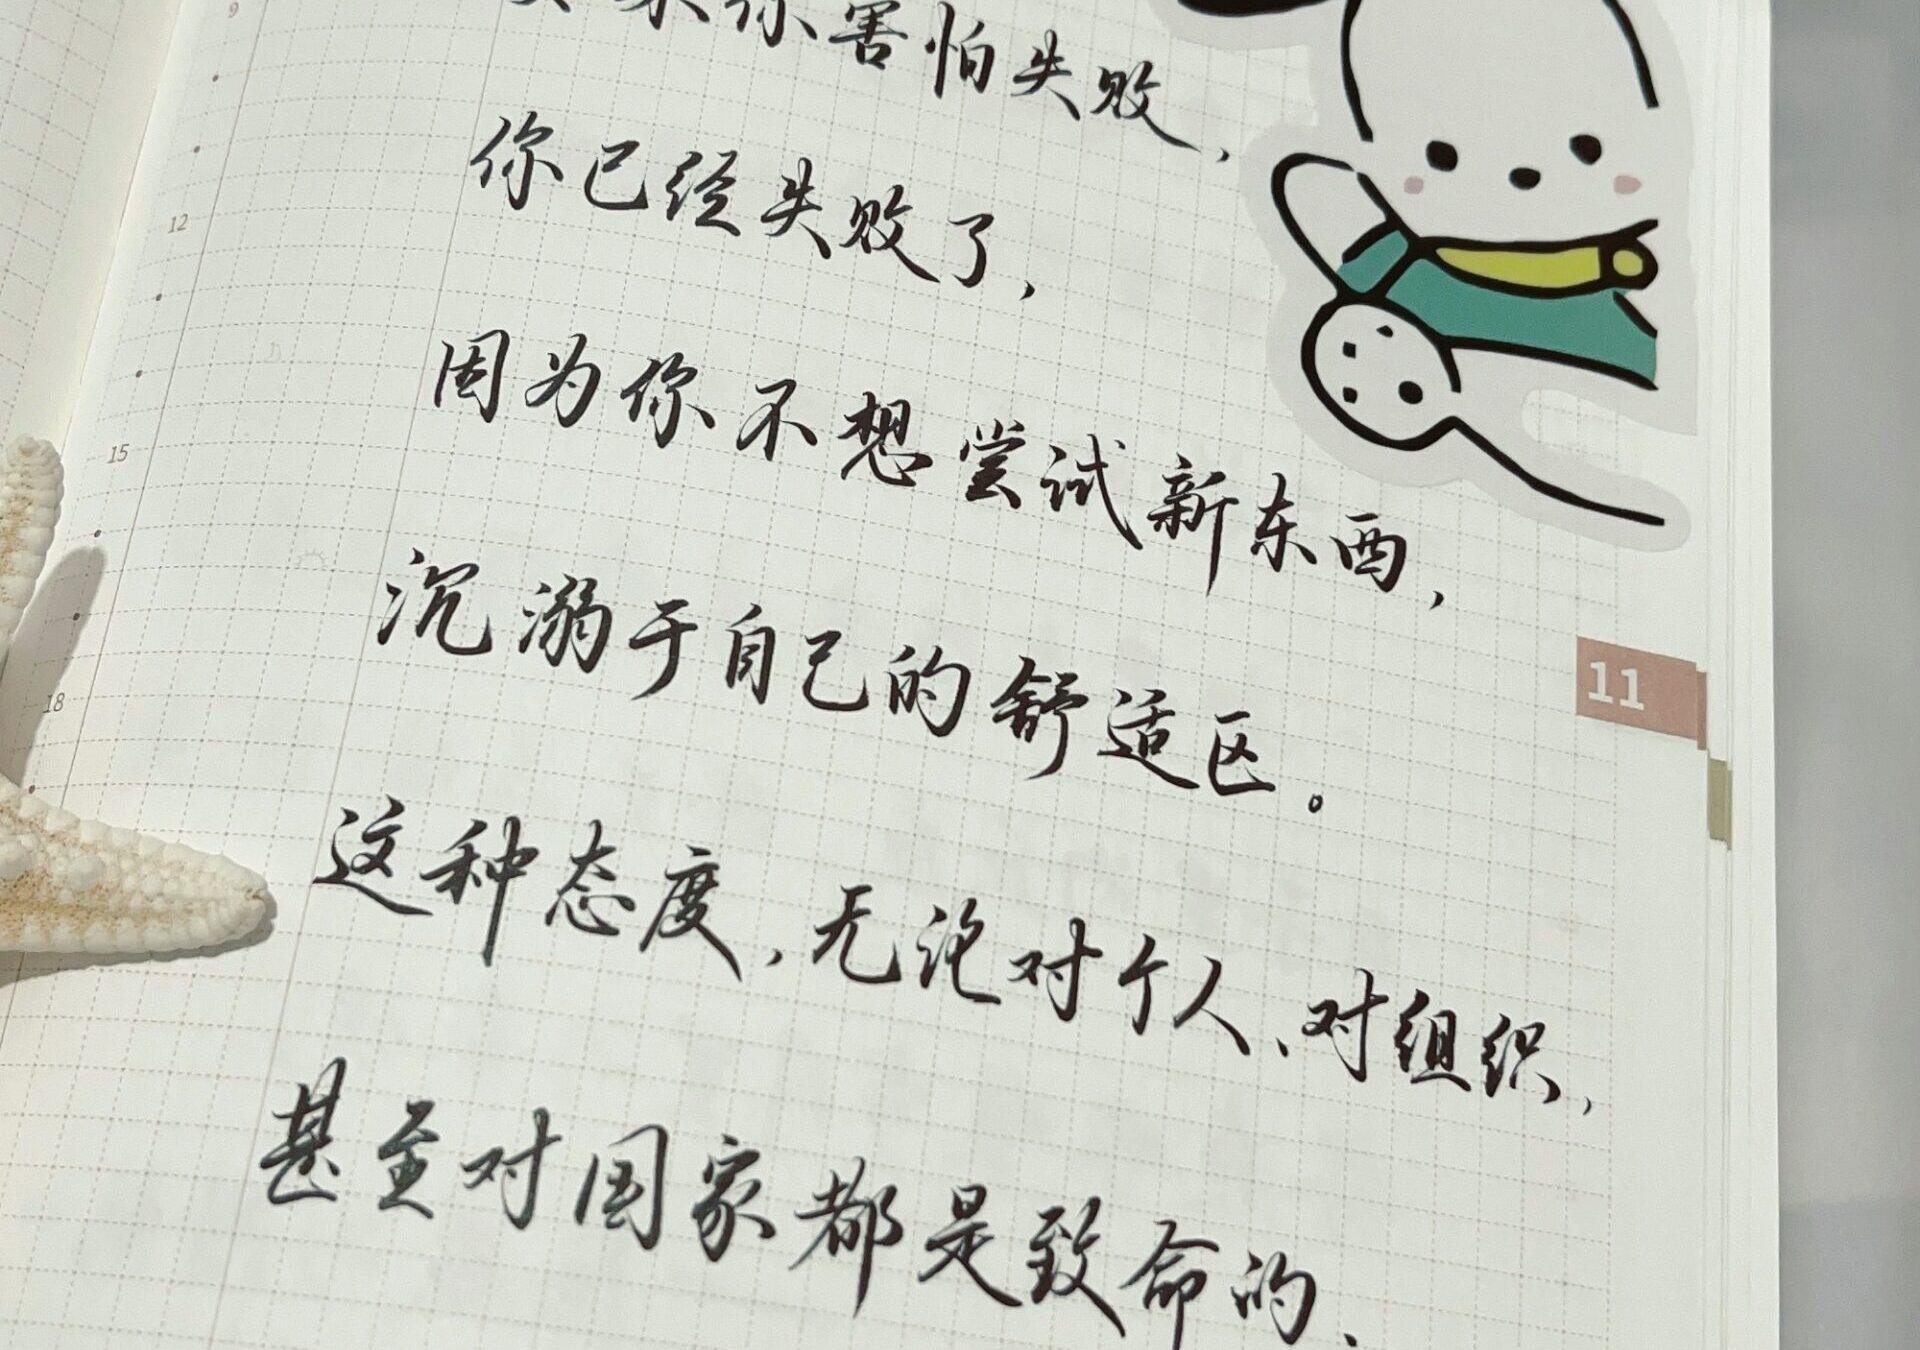 如果你害怕失败,
你已经失败了,
因为你不想尝试新东西,
沉溺于自己的舒适区。
这种态度,无论对个人、对组织,
甚至对国家都是致命的.
9
12
15
18
11